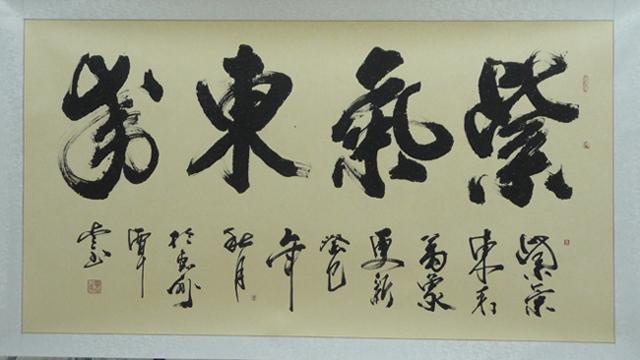 紫氣東來
紫氣
東來
萬象
更新
癸巳
年
秋月
於惠州